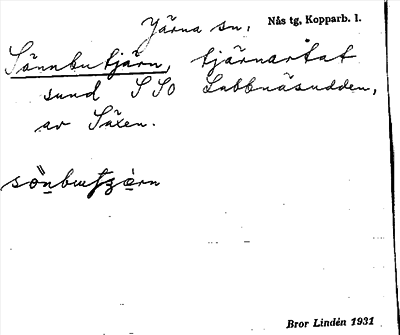 Järna sn, Nås tg, Kopparb. l.
Sännbutjärn, tjärnartat
sund S SO Labbnäsudden,
av Säxen.
Bror Lindén 1931